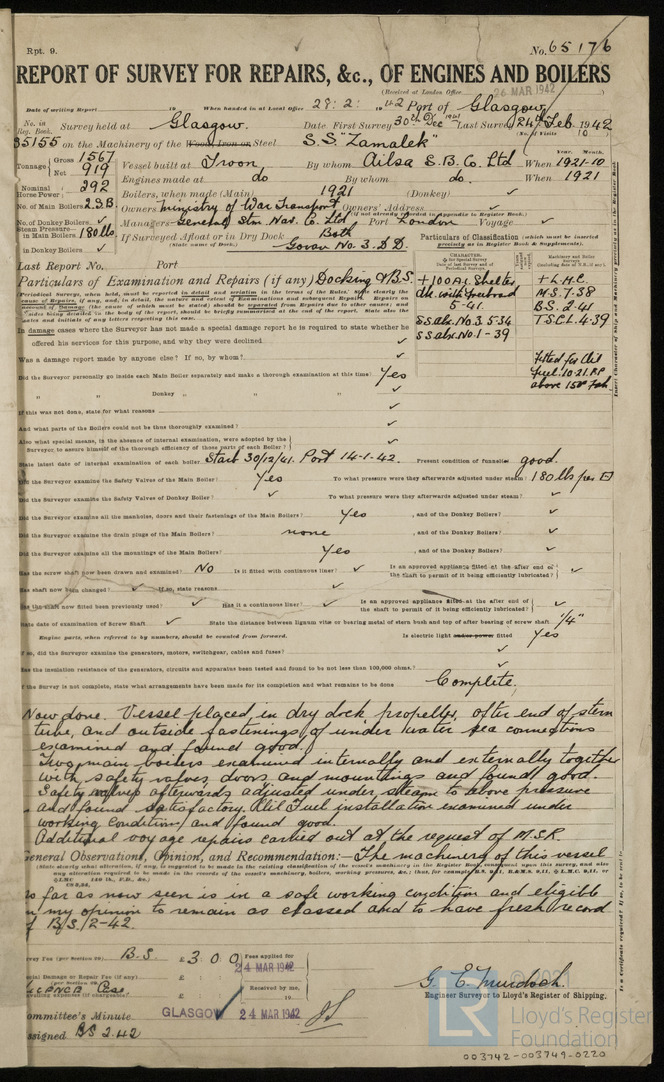 Rpt. 9.
No. 65176
REPORT OF SURVEY FOR REPAIRS, &c., OF ENGINES AND BOILERS
(Received at London Office 26 MAR 1942
Date of writing Report 19 When handed in at Local Office 28: 2: 1942 Port of Glasgow
No. in Reg. Book. Survey held at Glasgow. Date First Survey 30th Dec 1941 Last Survey 24th Feb 1942
(No. of Visits 10)
35155 on the Machinery of the Wood, Iron or Steel S.S. "Zamalek"
Tonnage Gross 1567 Net 919 Vessel built at Troon By whom Ailsa S.B. Co. Ltd When 1921-10
Year. Month.
Engines made at do By whom do. When 1921
Nominal Horse Power 292 Boilers, when made (Main) 1921 (Donkey) ✓
No. of Main Boilers 2 S.B. Owners Ministry of War Transport Owners' Address ✓
(if not already recorded in Appendix to Register Book.)
No. of Donkey Boilers ✓ Managers General Stm Nav. Co. Ltd Port London Voyage ✓
Steam Pressure in Main Boilers 180 lbs If Surveyed Afloat or in Dry Dock Both
(State name of Dock.) Govan No. 3 D.D.
in Donkey Boilers ✓
Particulars of Classification (which must be inserted precisely as in Register Book & Supplements).
Last Report No. Port
Particulars of Examination and Repairs (if any) Docking & B.S.
+100A1. Shelter
dk. with freeboard
5-41.
S.S. abr. No. 3. 5-34
S.S. abr. No. 1-39
+ L.M.C.
M.S. 7.38
B.S. 2-41
T.S.C.L. 4-39
Fitted for Oil
Fuel 10.21. F.P.
above 150° Fah
In damage cases where the Surveyor has not made a special damage report he is required to state whether he
offered his services for this purpose, and why they were declined ✓
Was a damage report made by anyone else? If so, by whom? ✓
Did the Surveyor personally go inside each Main Boiler separately and make a thorough examination at this time? Yes
" " Donkey " " " ✓
If this was not done, state for what reasons ✓
And what parts of the Boilers could not be thus thoroughly examined? ✓
Also what special means, in the absence of internal examination, were adopted by the
Surveyor, to assure himself of the thorough efficiency of those parts of each Boiler? ✓
State latest date of internal examination of each boiler Starb 30/12/41. Port 14-1-42. Present condition of funnel(s) good.
Did the Surveyor examine the Safety Valves of the Main Boiler? Yes To what pressure were they afterwards adjusted under steam? 180 lbs per □
Did the Surveyor examine the Safety Valves of Donkey Boiler? ✓ To what pressure were they afterwards adjusted under steam? ✓
Did the Surveyor examine all the manholes, doors and their fastenings of the Main Boilers? Yes, and of the Donkey Boilers? ✓
Did the Surveyor examine the drain plugs of the Main Boilers? none, and of the Donkey Boilers? ✓
Did the Surveyor examine all the mountings of the Main Boilers? Yes, and of the Donkey Boilers? ✓
Has the screw shaft now been drawn and examined? No Is it fitted with continuous liner? ✓ Is an approved appliance fitted at the after end of the shaft to permit of it being efficiently lubricated? ✓
Has shaft now been changed? ✓ If so, state reasons ✓
Has the shaft now fitted been previously used? ✓ Has it a continuous liner? ✓ Is an approved appliance fitted at the after end of the shaft to permit of it being efficiently lubricated? ✓
State date of examination of Screw Shaft ✓ State the distance between lignum vitæ or bearing metal of stern bush and top of after bearing of screw shaft 1/4"
Engine parts, when referred to by numbers, should be counted from forward. Is electric light and/or power fitted Yes
If so, did the Surveyor examine the generators, motors, switchgear, cables and fuses? ✓
Has the insulation resistance of the generators, circuits and apparatus been tested and found to be not less than 100,000 ohms? ✓
If the Survey is not complete, state what arrangements have been made for its completion and what remains to be done Complete.
Now done. Vessel placed in dry dock propeller, after end of stern
tube, and outside fastenings of under water sea connections
examined and found good.
Two main boilers examined internally and externally together
with safety valves, doors and mountings and found good.
Safety valves afterwards adjusted under steam to above pressure
and found satisfactory. Oil Fuel installation examined under
working condition, and found good.
Additional voyage repairs carried out at the request of M.S.R
General Observations, Opinion, and Recommendation:— The machinery of this vessel
so far as now seen is in a safe working condition and eligible
in my opinion to remain as classed and to have fresh record
of B/S. 2-42.
Survey Fee (per Section 29) B.S. £ 3 0 0 Fees applied for
24 MAR 1942
Special Damage or Repair Fee (if any) £ : :
(per Section 29)
Received by me,
Travelling expenses (if chargeable) £ : : 19
G. E. Murdoch.
Engineer Surveyor to Lloyd's Register of Shipping.
Committee's Minute GLASGOW 24 MAR 1942
Assigned BS 2.42
LR
Lloyd's Register
Foundation
003742-003749-0220